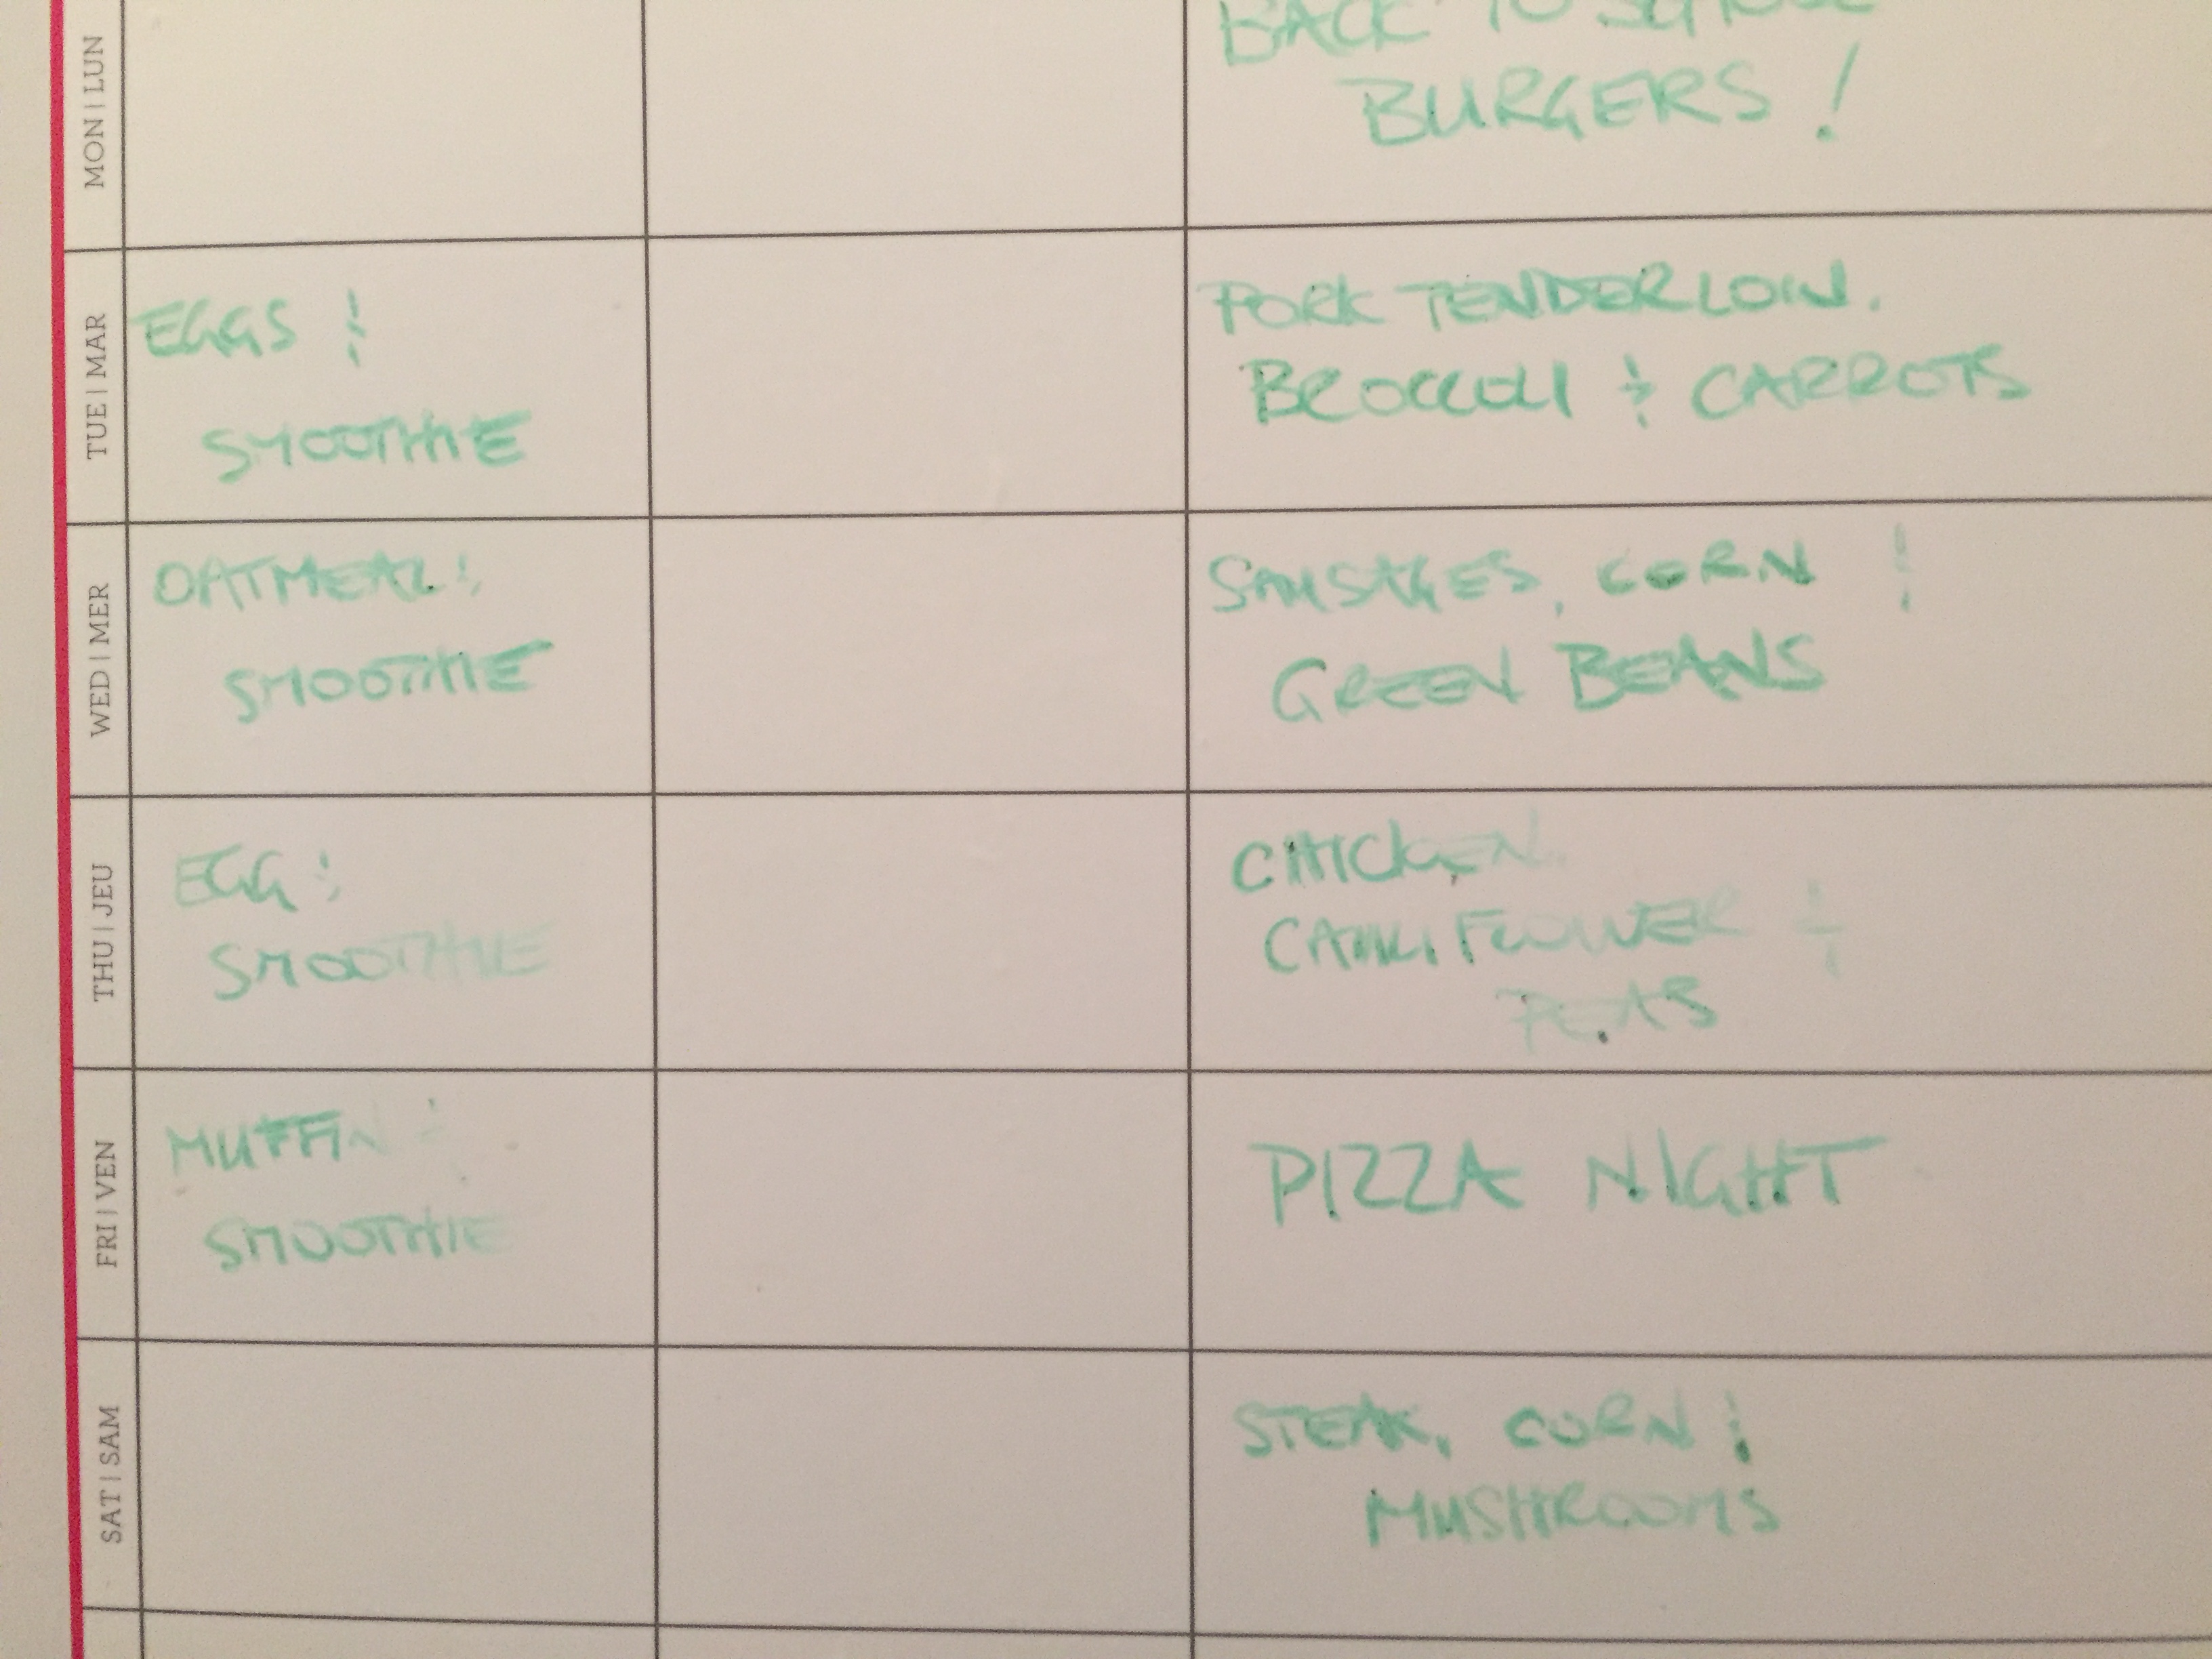 MON | LUN
BACK TO SCHOOL
BURGERS!
TUE | MAR
EGGS &
SMOOTHIE
PORK TENDERLOIN.
BROCCOLI & CARROTS
WED | MER
OATMEAL &
SMOOTHIE
SAUSAGES, CORN &
GREEN BEANS
THU | JEU
EGG &
SMOOTHIE
CHICKEN,
CAULIFLOWER &
PEAS
FRI | VEN
MUFFIN &
SMOOTHIE
PIZZA NIGHT
SAT | SAM
STEAK, CORN &
MUSHROOMS